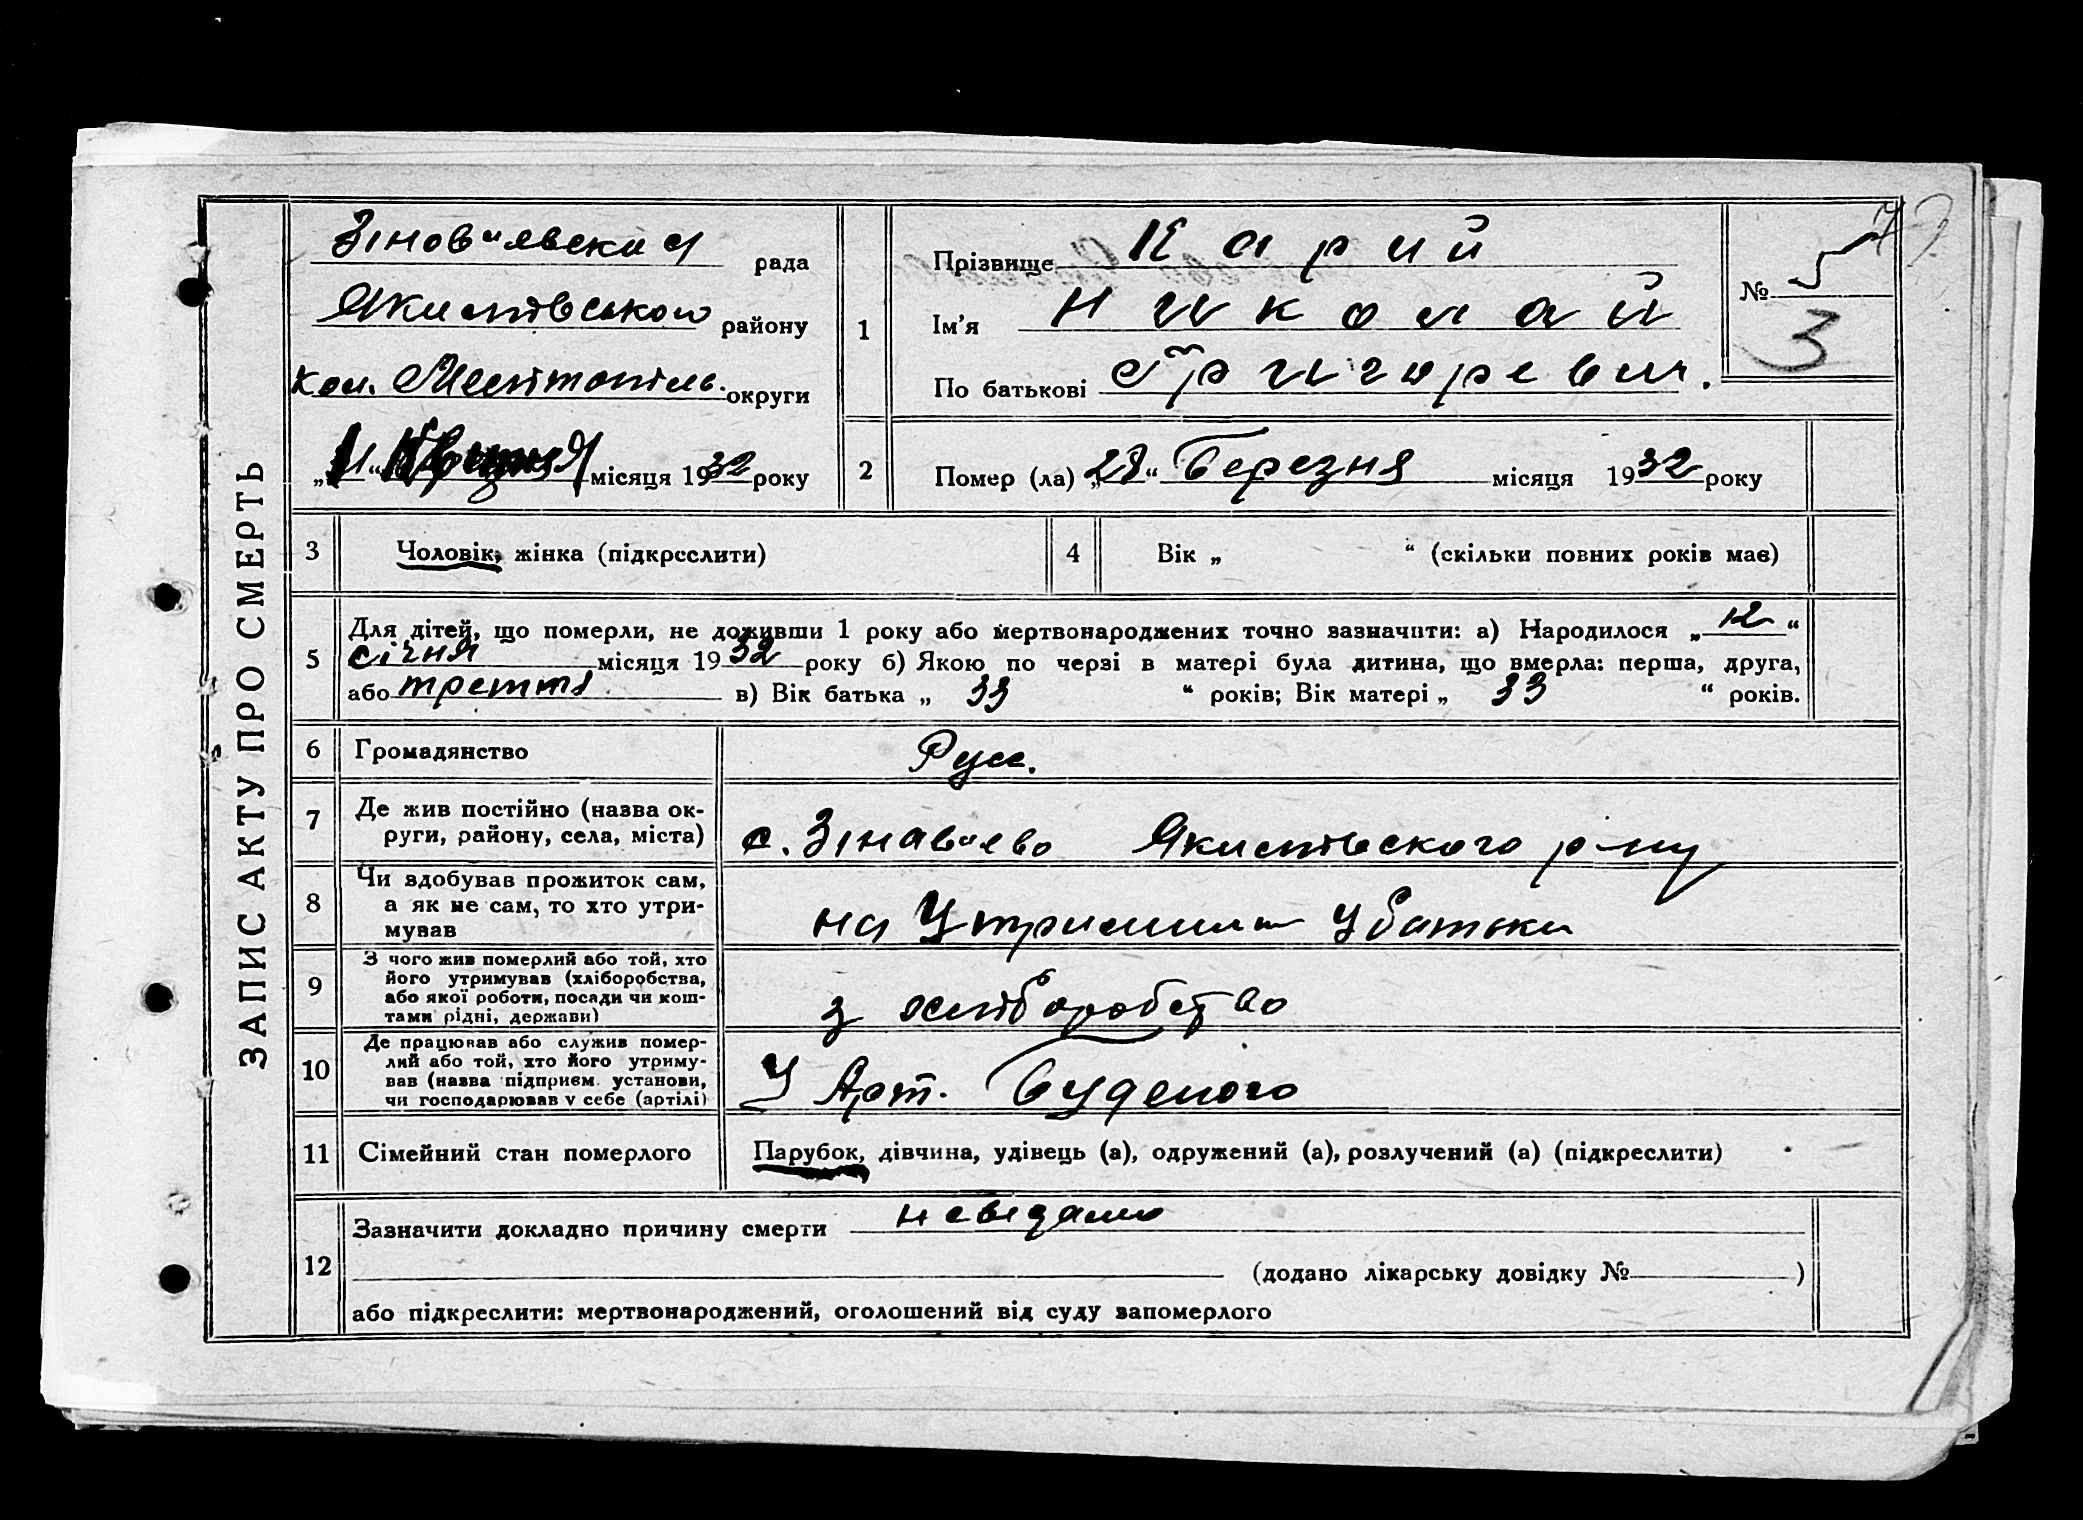 ЗАПИС АКТУ ПРО СМЕРТЬ
Зінов"явская рада
Якимівського району
кол. Мелітопіль. округи
„11“ Квітня місяця 1932 року
1
Прізвище Карий
Ім'я Николай
По батькові Григоревич.
№ 5
3
2
Помер (ла) „28“ Березня місяця 1932 року
3
Чоловік, жінка (підкреслити)
4
Вік „ “ (скільки повних років має)
5
Для дітей, що померли, не доживши 1 року або мертвонароджених точно зазначити: а) Народилося „12“
січня місяця 1932 року б) Якою по черзі в матері була дитина, що вмерла: перша, друга,
або третя в) Вік батька „ 33 “ років; Вік матері „ 33 “ років.
6
Громадянство
Русс.
7
Де жив постійно (назва ок-
руги, району, села, міста)
с. Зінав"ево Якимівского р-ну
8
Чи здобував прожиток сам,
а як не сам, то хто утри-
мував
на Утриманні У батька
9
З чого жив померлий або той, хто
його утримував (хліборобства,
або якої роботи, посади чи кош-
тами рідні, держави)
з хліборобство
10
Де працював або служив помер-
лий або той, хто його утриму-
вав (назва підприєм. установи,
чи господарював у себе (артілі)
У Арт. Буденого
11
Сімейний стан померлого
Парубок, дівчина, удівець (а), одружений (а), розлучений (а) (підкреслити)
12
Зазначити докладно причину смерти невідамо
(додано лікарську довідку № )
або підкреслити: мертвонароджений, оголошений від суду запомерлого